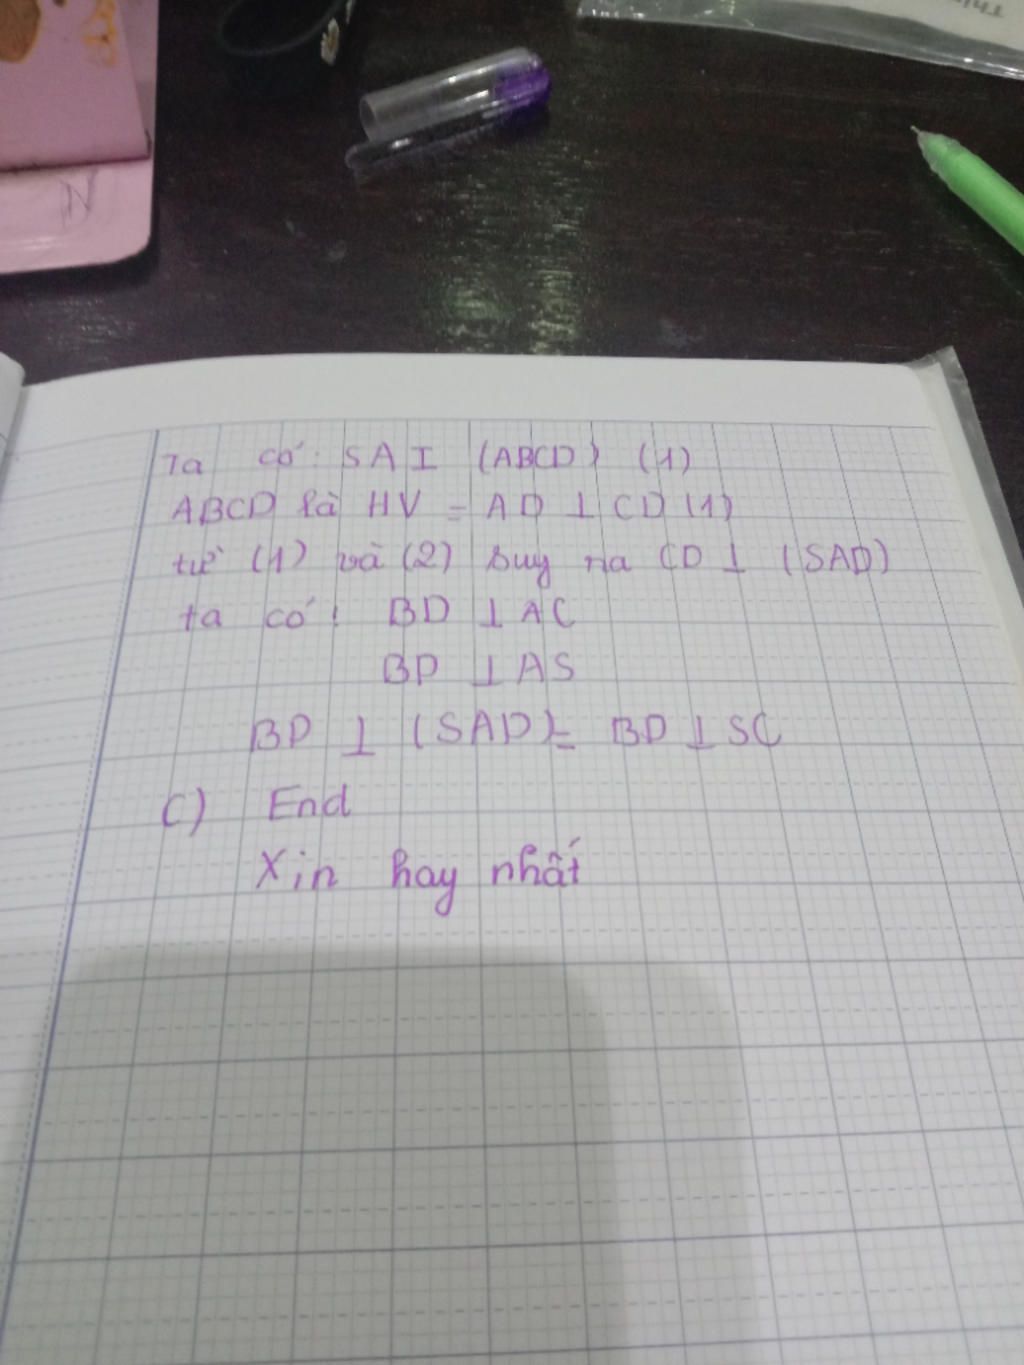 Ta có: SA I (ABCD) (1)
ABCD là HV = AD ⊥ CD (1)
từ (1) và (2) suy ra CD ⊥ (SAD)
ta có: BD ⊥ AC
BD ⊥ AS
BD ⊥ (SAD) = BD ⊥ SC
C) End
Xin hay nhất